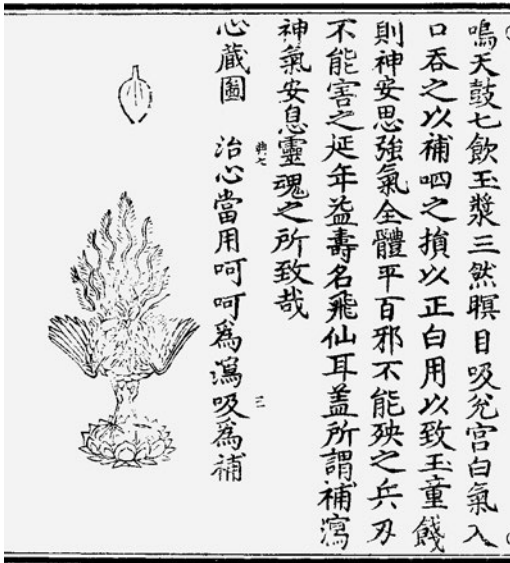 鳴天鼓七飲玉漿三然瞑目吸兊宮白氣入
口吞之以補呬之損以正白用以致玉童餞
則神安思強氣全體平百邪不能殃之兵刃
不能害之延年益壽名飛仙耳盖所謂補瀉
神氣安息靈魂之所致哉
心藏圖　治心當用呵呵爲瀉吸爲補
典七